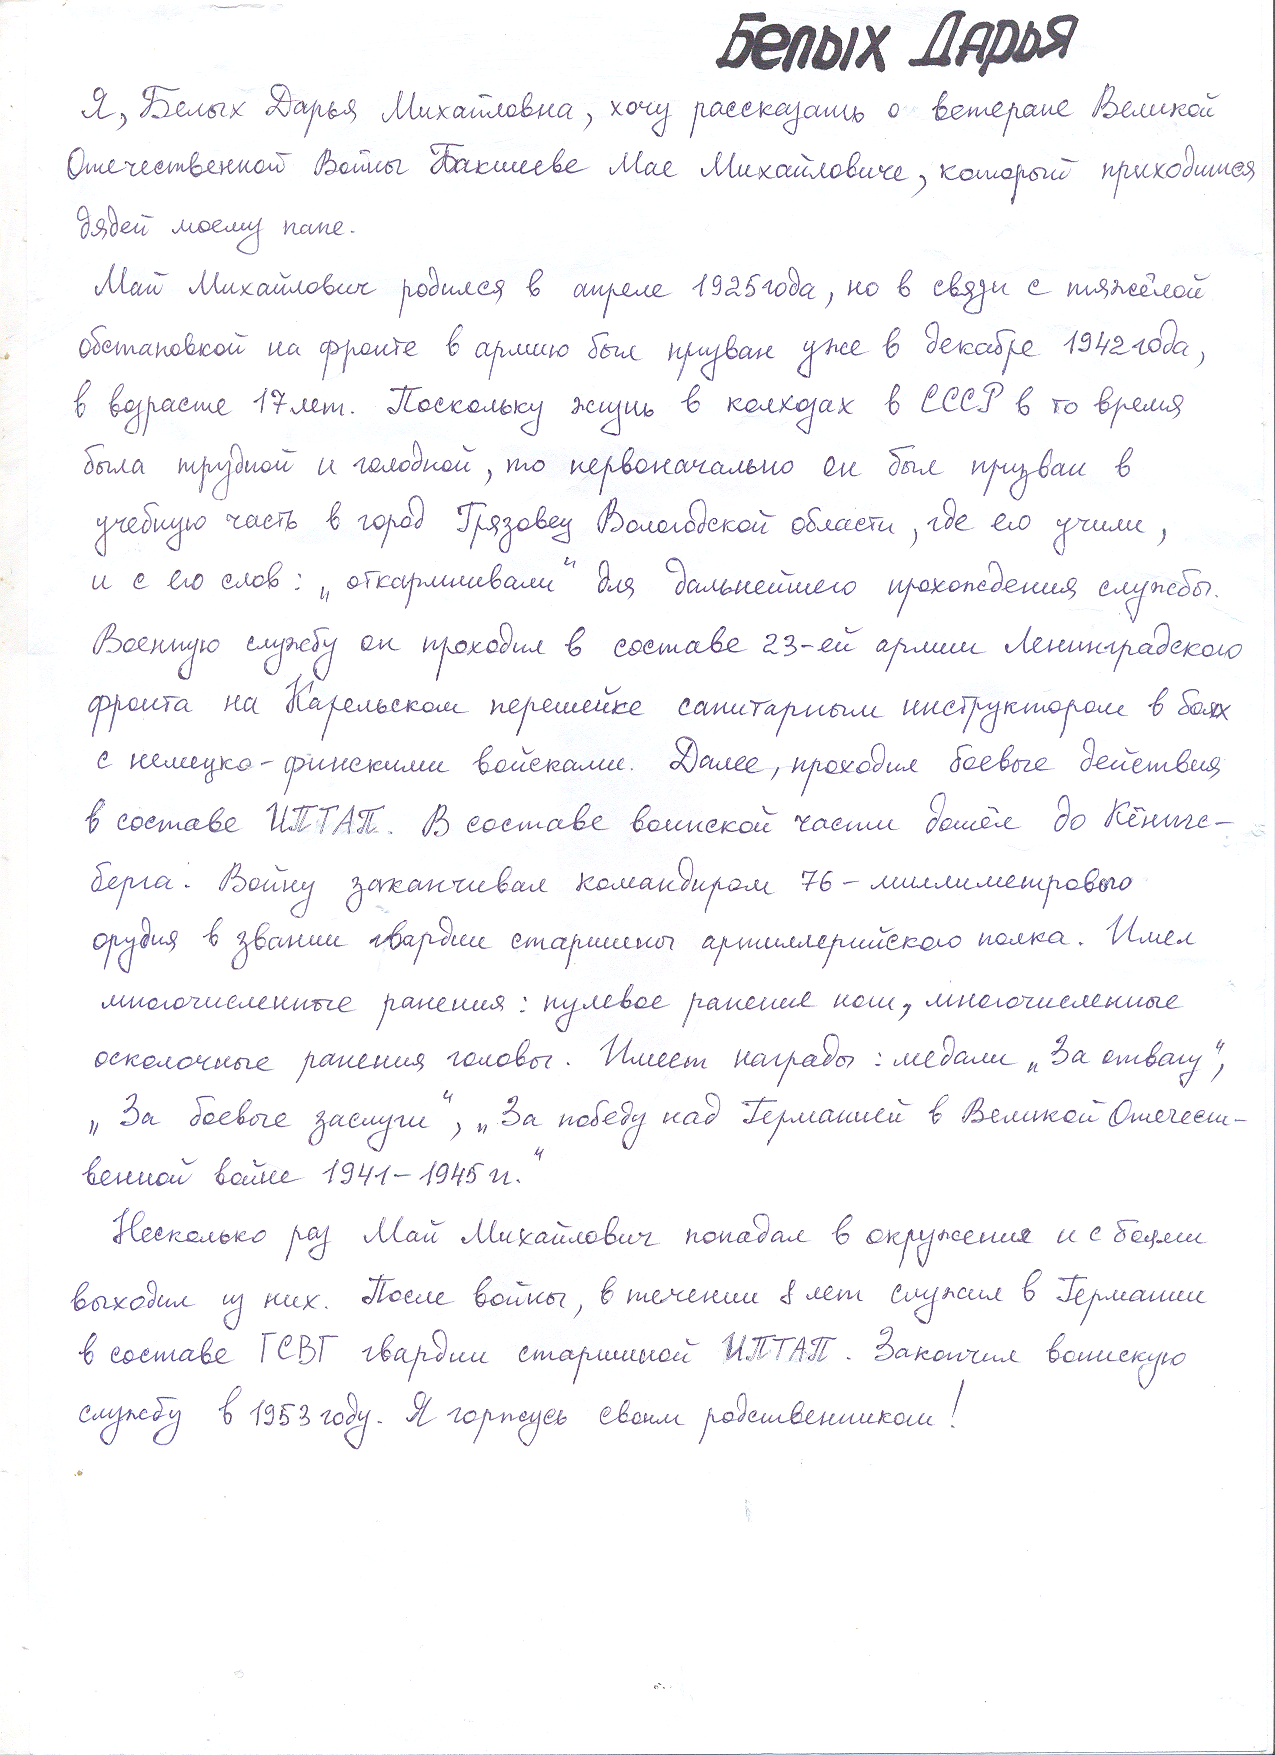 Белых Дарья
Я, Белых Дарья Михайловна, хочу рассказать о ветеране Великой
Отечественной Войны Бакшееве Мае Михайловиче, который приходится
дядей моему папе.
Май Михайлович родился в апреле 1925 года, но в связи с тяжёлой
обстановкой на фронте в армию был призван уже в декабре 1942 года,
в возрасте 17 лет. Поскольку жизнь в колхозах в СССР в то время
была трудной и голодной, то первоначально он был призван в
учебную часть в город Грязовец Вологодской области, где его учили,
и с его слов: „откармливали“ для дальнейшего прохождения службы.
Военную службу он проходил в составе 23-ей армии Ленинградского
фронта на Карельском перешейке санитарным инструктором в боях
с немецко-финскими войсками. Далее, проходил боевые действия
в составе ИПТАП. В составе воинской части дошёл до Кёнигс-
берга. Войну заканчивал командиром 76-миллиметрового
орудия в звании гвардии старшины артиллерийского полка. Имел
многочисленные ранения: пулевое ранение ноги, многочисленные
осколочные ранения головы. Имеет награды: медали „За отвагу“,
„За боевые заслуги“, „За победу над Германией в Великой Отечест-
венной войне 1941-1945 гг.“
Несколько раз Май Михайлович попадал в окружения и с боями
выходил из них. После войны, в течении 8 лет служил в Германии
в составе ГСВГ гвардии старшиной ИПТАП. Закончил воинскую
службу в 1953 году. Я горжусь своим родственником!